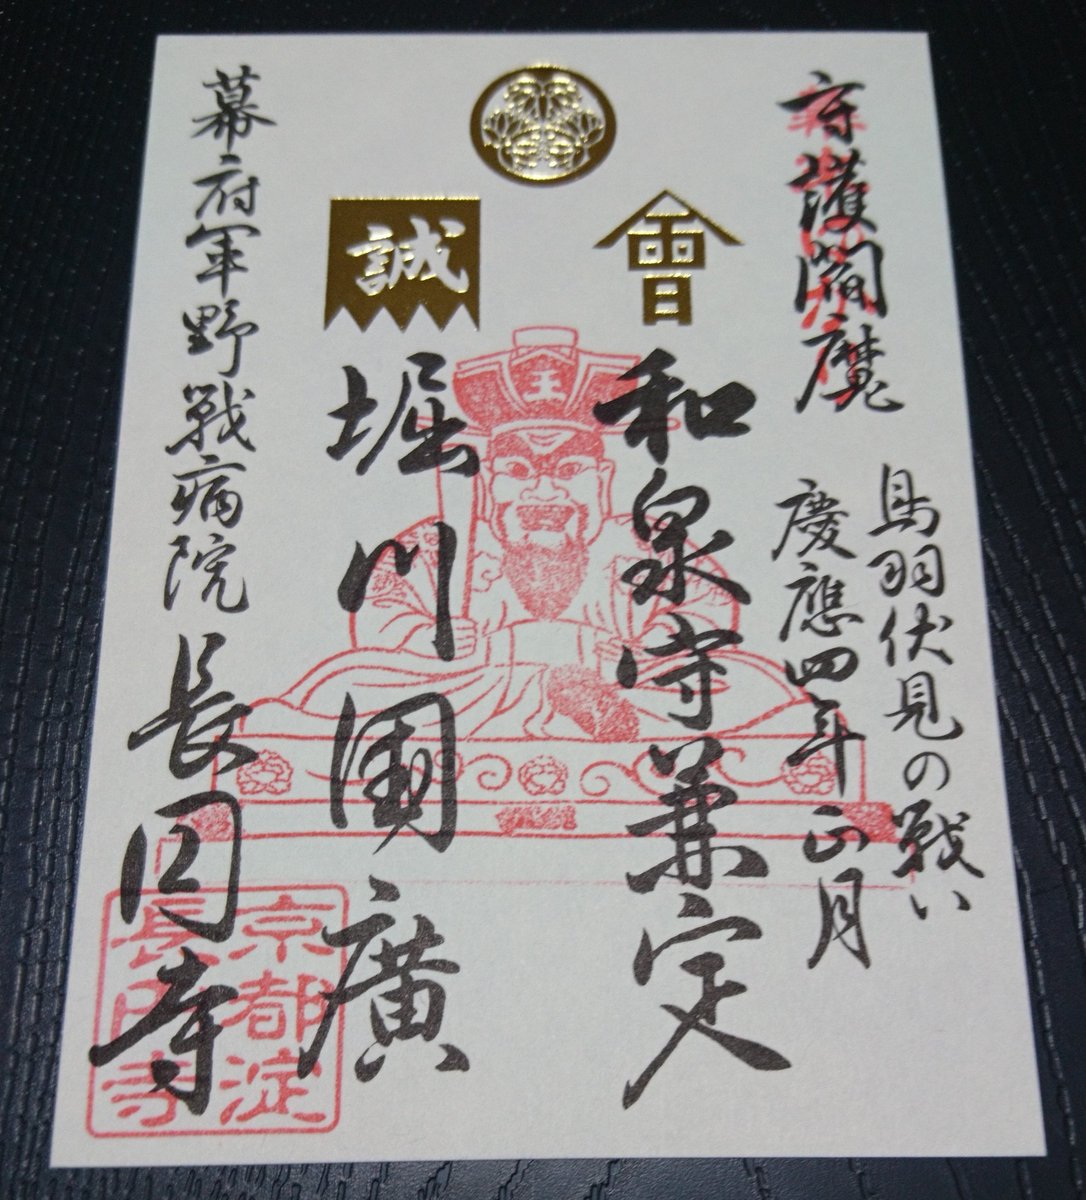 守護閻魔
鳥羽伏見の戦い
慶應四年正月
會
和泉守兼定
王
誠
堀川國廣
幕府軍野戦病院 長円寺
京都淀
長円寺